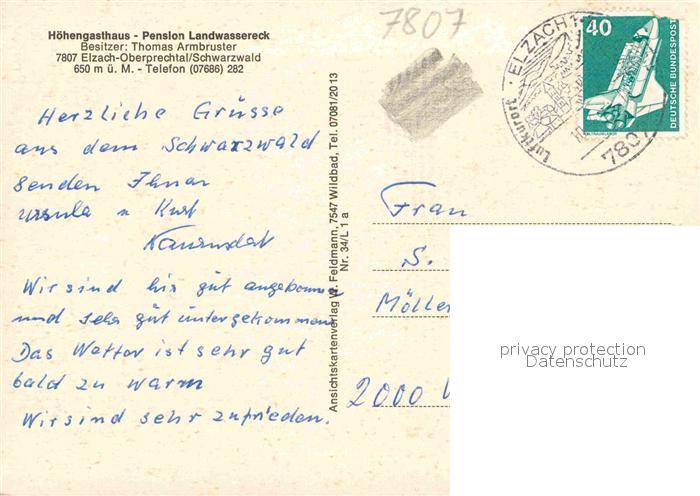 Höhengasthaus - Pension Landwassereck
Besitzer: Thomas Armbruster
7807 Elzach-Oberprechtal/Schwarzwald
650 m ü. M. - Telefon (07686) 282
7807
ELZACH 1
Luftkurort
7807
40
DEUTSCHE BUNDESPOST
Herzliche Grüsse
aus dem Schwarzwald
senden Ihnen
Ursula u Kurt
Wir sind hir gut angekommen
und sehr gut untergekommen
Das Wetter ist sehr gut
bald zu warm
Wir sind sehr zufrieden.
Ansichtskartenverlag W. Feldmann, 7547 Wildbad, Tel. 07081/2013
Nr. 34/L 1 a
Frau
S.
Möller
2000
privacy protection
Datenschutz